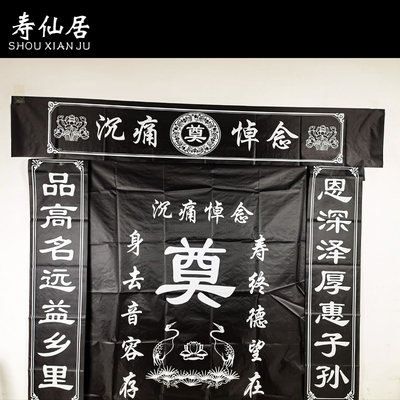 寿仙居
SHOU XIAN JU
沉痛 奠 悼念
恩深泽厚惠子孙
品高名远益乡里
沉痛悼念
奠
寿终德望在
身去音容存